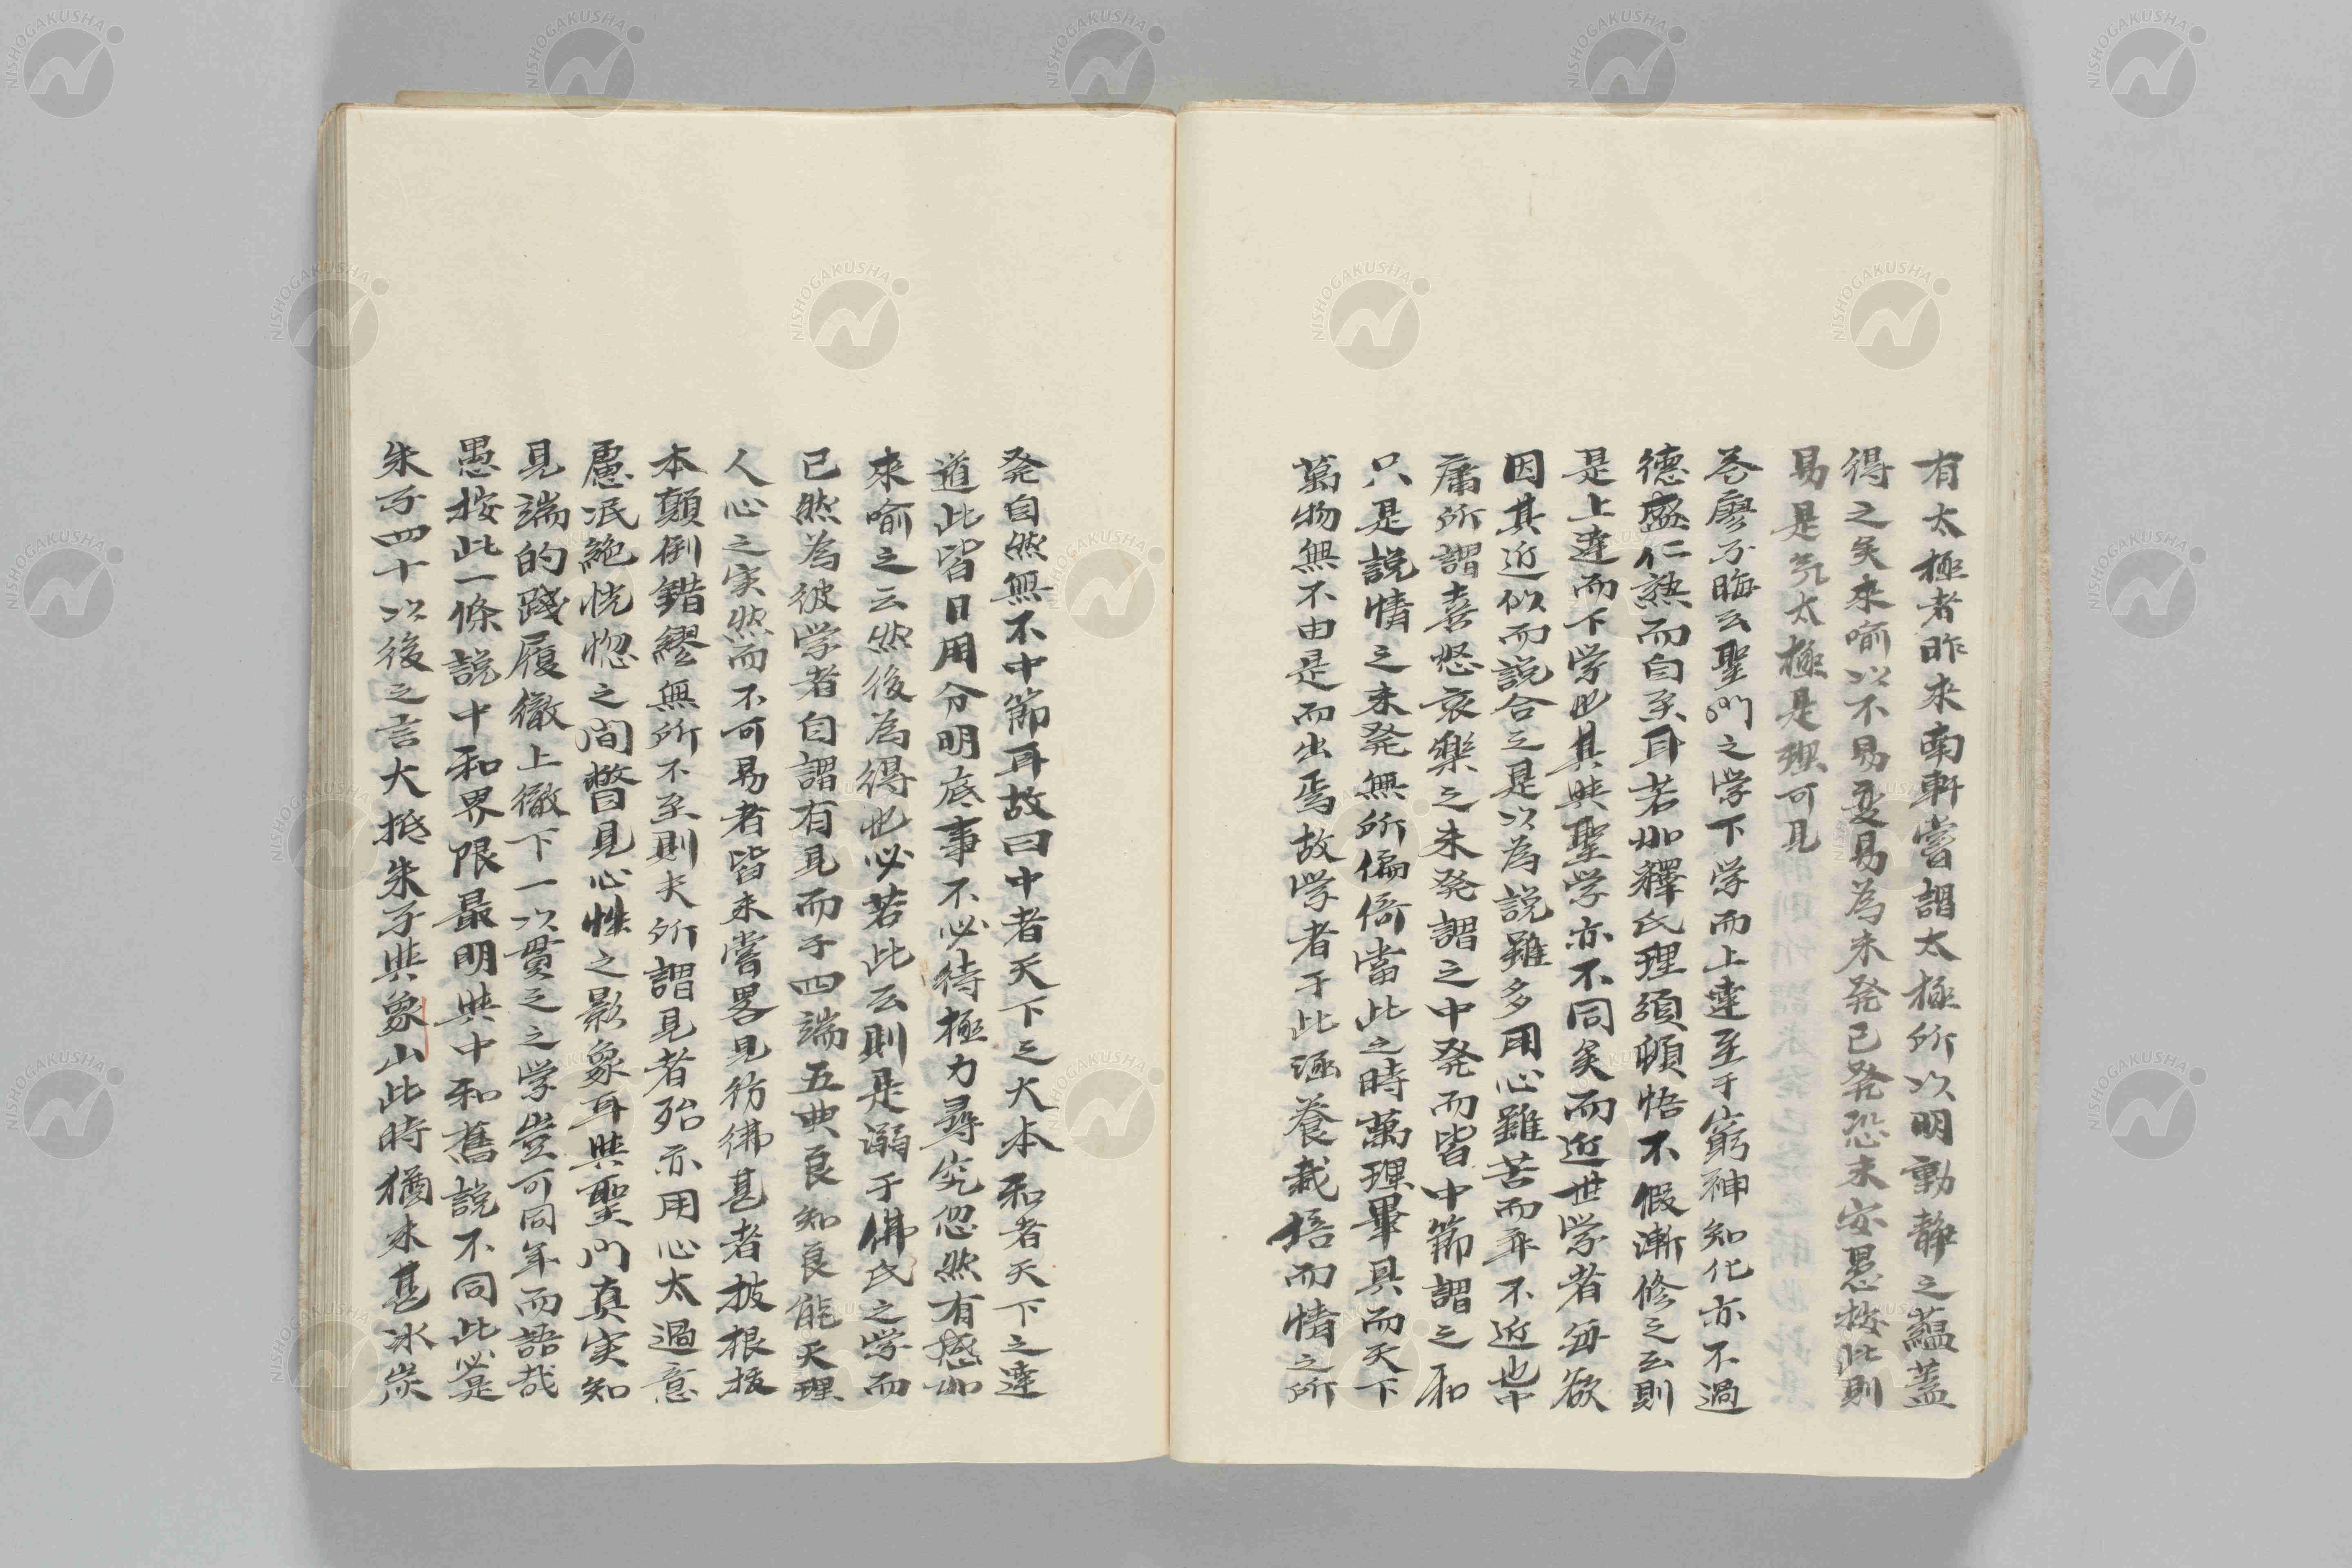 有太極者昨来南軒嘗謂太極所以明動静之蘊蓋
得之矣来喻以不易変易為未発已発恐未安愚按此則
易是気太極是理可見
答廖子晦云聖門之学下学而上達至于窮神知化亦不過
徳盛仁熟而自至耳若如釋氏理須頓悟不假漸修之云則
是上達而下学也其與聖学亦不同矣而近世学者毎欲
因其近似而説合之是以為説雖多用心雖苦而卒不近也中
庸所謂喜怒哀楽之未発謂之中発而皆中節謂之和
只是説情之未発無所偏倚當此之時萬理畢具而天下
萬物無不由是而出焉故学者于此涵養栽培而情之所
発自然無不中節耳故曰中者天下之大本和者天下之達
道此皆日用分明底事不必待極力尋究忽然有感如
来喻之云然後為得也必若此云則是溺于佛氏之学而
已然為彼学者自謂有見而于四端五典良知良能天理
人心之実然而不可易者皆未嘗畧見彷彿甚者披根抜
本顛倒錯繆無所不至則夫所謂見者殆亦用心太過意
慮泯絶恍惚之間瞥見心性之影象耳與聖門真実知
見端的踐履徹上徹下一以貫之之学豈可同年而語哉
愚按此一條説中和界限最明與中和舊説不同此必是
朱子四十以後之言大抵朱子與象山此時猶未甚冰炭
NISHOGAKUSHA